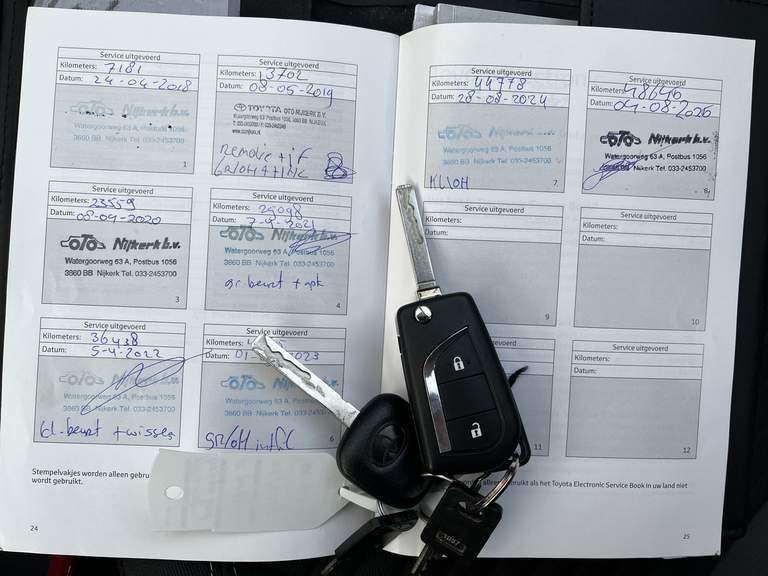 Service uitgevoerd
Kilometers: 7181
Datum: 24-04-2018
Nijkerk b.v.
Watergoorweg 63 A, Postbus 1056
3860 BB Nijkerk Tel. 033-2453700
1
Service uitgevoerd
Kilometers: 13702
Datum: 08-05-2019
TOYOTA OTO NIJKERK B.V.
2
Service uitgevoerd
Kilometers: 23559
Datum: 08-09-2020
OTO Nijkerk b.v.
Watergoorweg 63 A, Postbus 1056
3860 BB Nijkerk Tel. 033-2453700
3
Service uitgevoerd
Kilometers: 29098
Datum:
OTO Nijkerk b.v.
Watergoorweg 63 A, Postbus 1056
3860 BB Nijkerk Tel. 033-2453700
gr beurt + apk
4
Service uitgevoerd
Kilometers: 36438
Datum: 5-4-2022
OTO Nijkerk b.v.
Watergoorweg 63 A, Postbus 1056
3860 BB Nijkerk Tel. 033-2453700
kl. beurt + wissers
Service uitgevoerd
Kilometers:
Datum: 01- 023
OTO Nijkerk b.v.
Watergoorweg 63 A, Postbus 1056
3860 BB Nijkerk Tel. 033-2453700
6
Stempelvakjes worden alleen gebruikt
wordt gebruikt.
24
Service uitgevoerd
Kilometers: 44778
Datum: 28-08-2024
OTO Nijkerk b.v.
Watergoorweg 63 A, Postbus 1056
3860 BB Nijkerk Tel. 033-2453700
KL/OH
7
Service uitgevoerd
Kilometers: 48646
Datum:
OTO Nijkerk b.v.
Watergoorweg 63 A, Postbus 1056
Nijkerk Tel. 033-2453700
8
Service uitgevoerd
Kilometers:
Datum:
9
Service uitgevoerd
Kilometers:
Datum:
10
Service uitgevoerd
11
Service uitgevoerd
Kilometers:
Datum:
12
alleen gebruikt als het Toyota Electronic Service Book in uw land niet
25